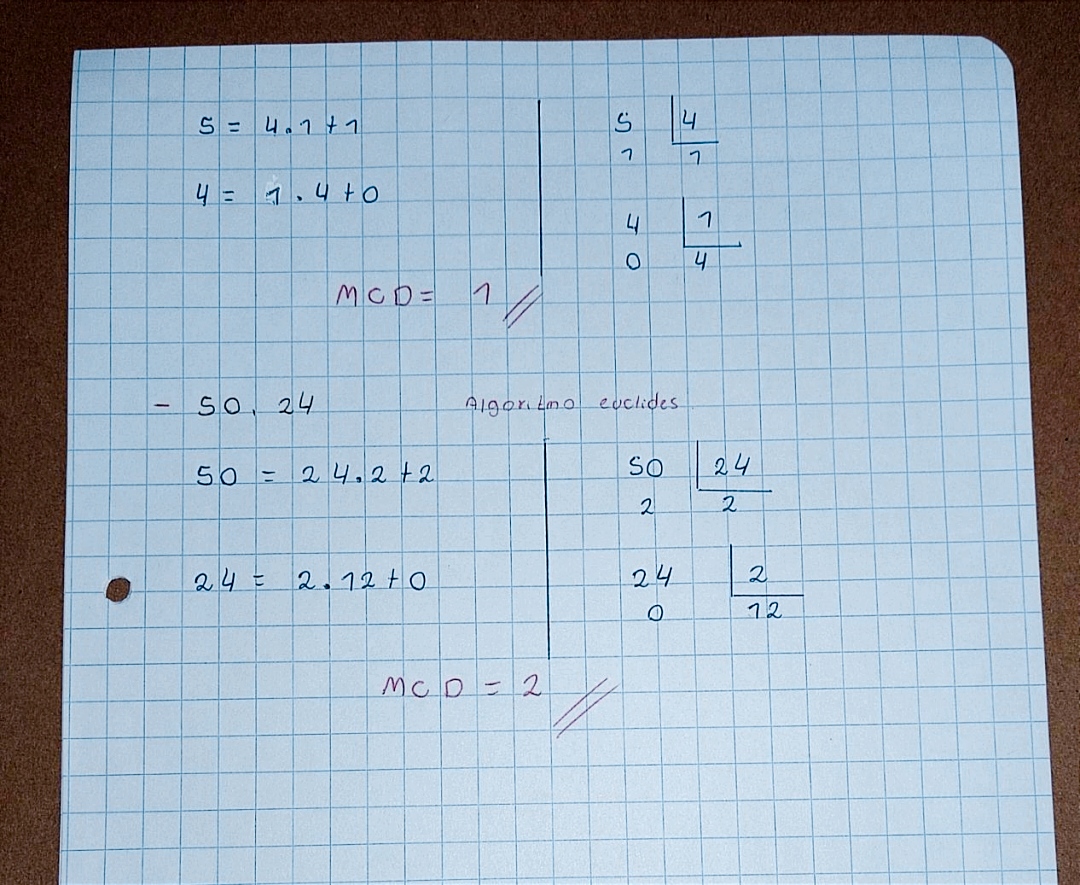 5 = 4.1+1
4 = 1.4+0
5 4
1 1
4 1
0 4
MCD= 1 //
- 50, 24 Algoritmo euclides
50 = 24.2+2
24 = 2.12+0
50 24
2 2
24 2
0 12
MCD = 2 //